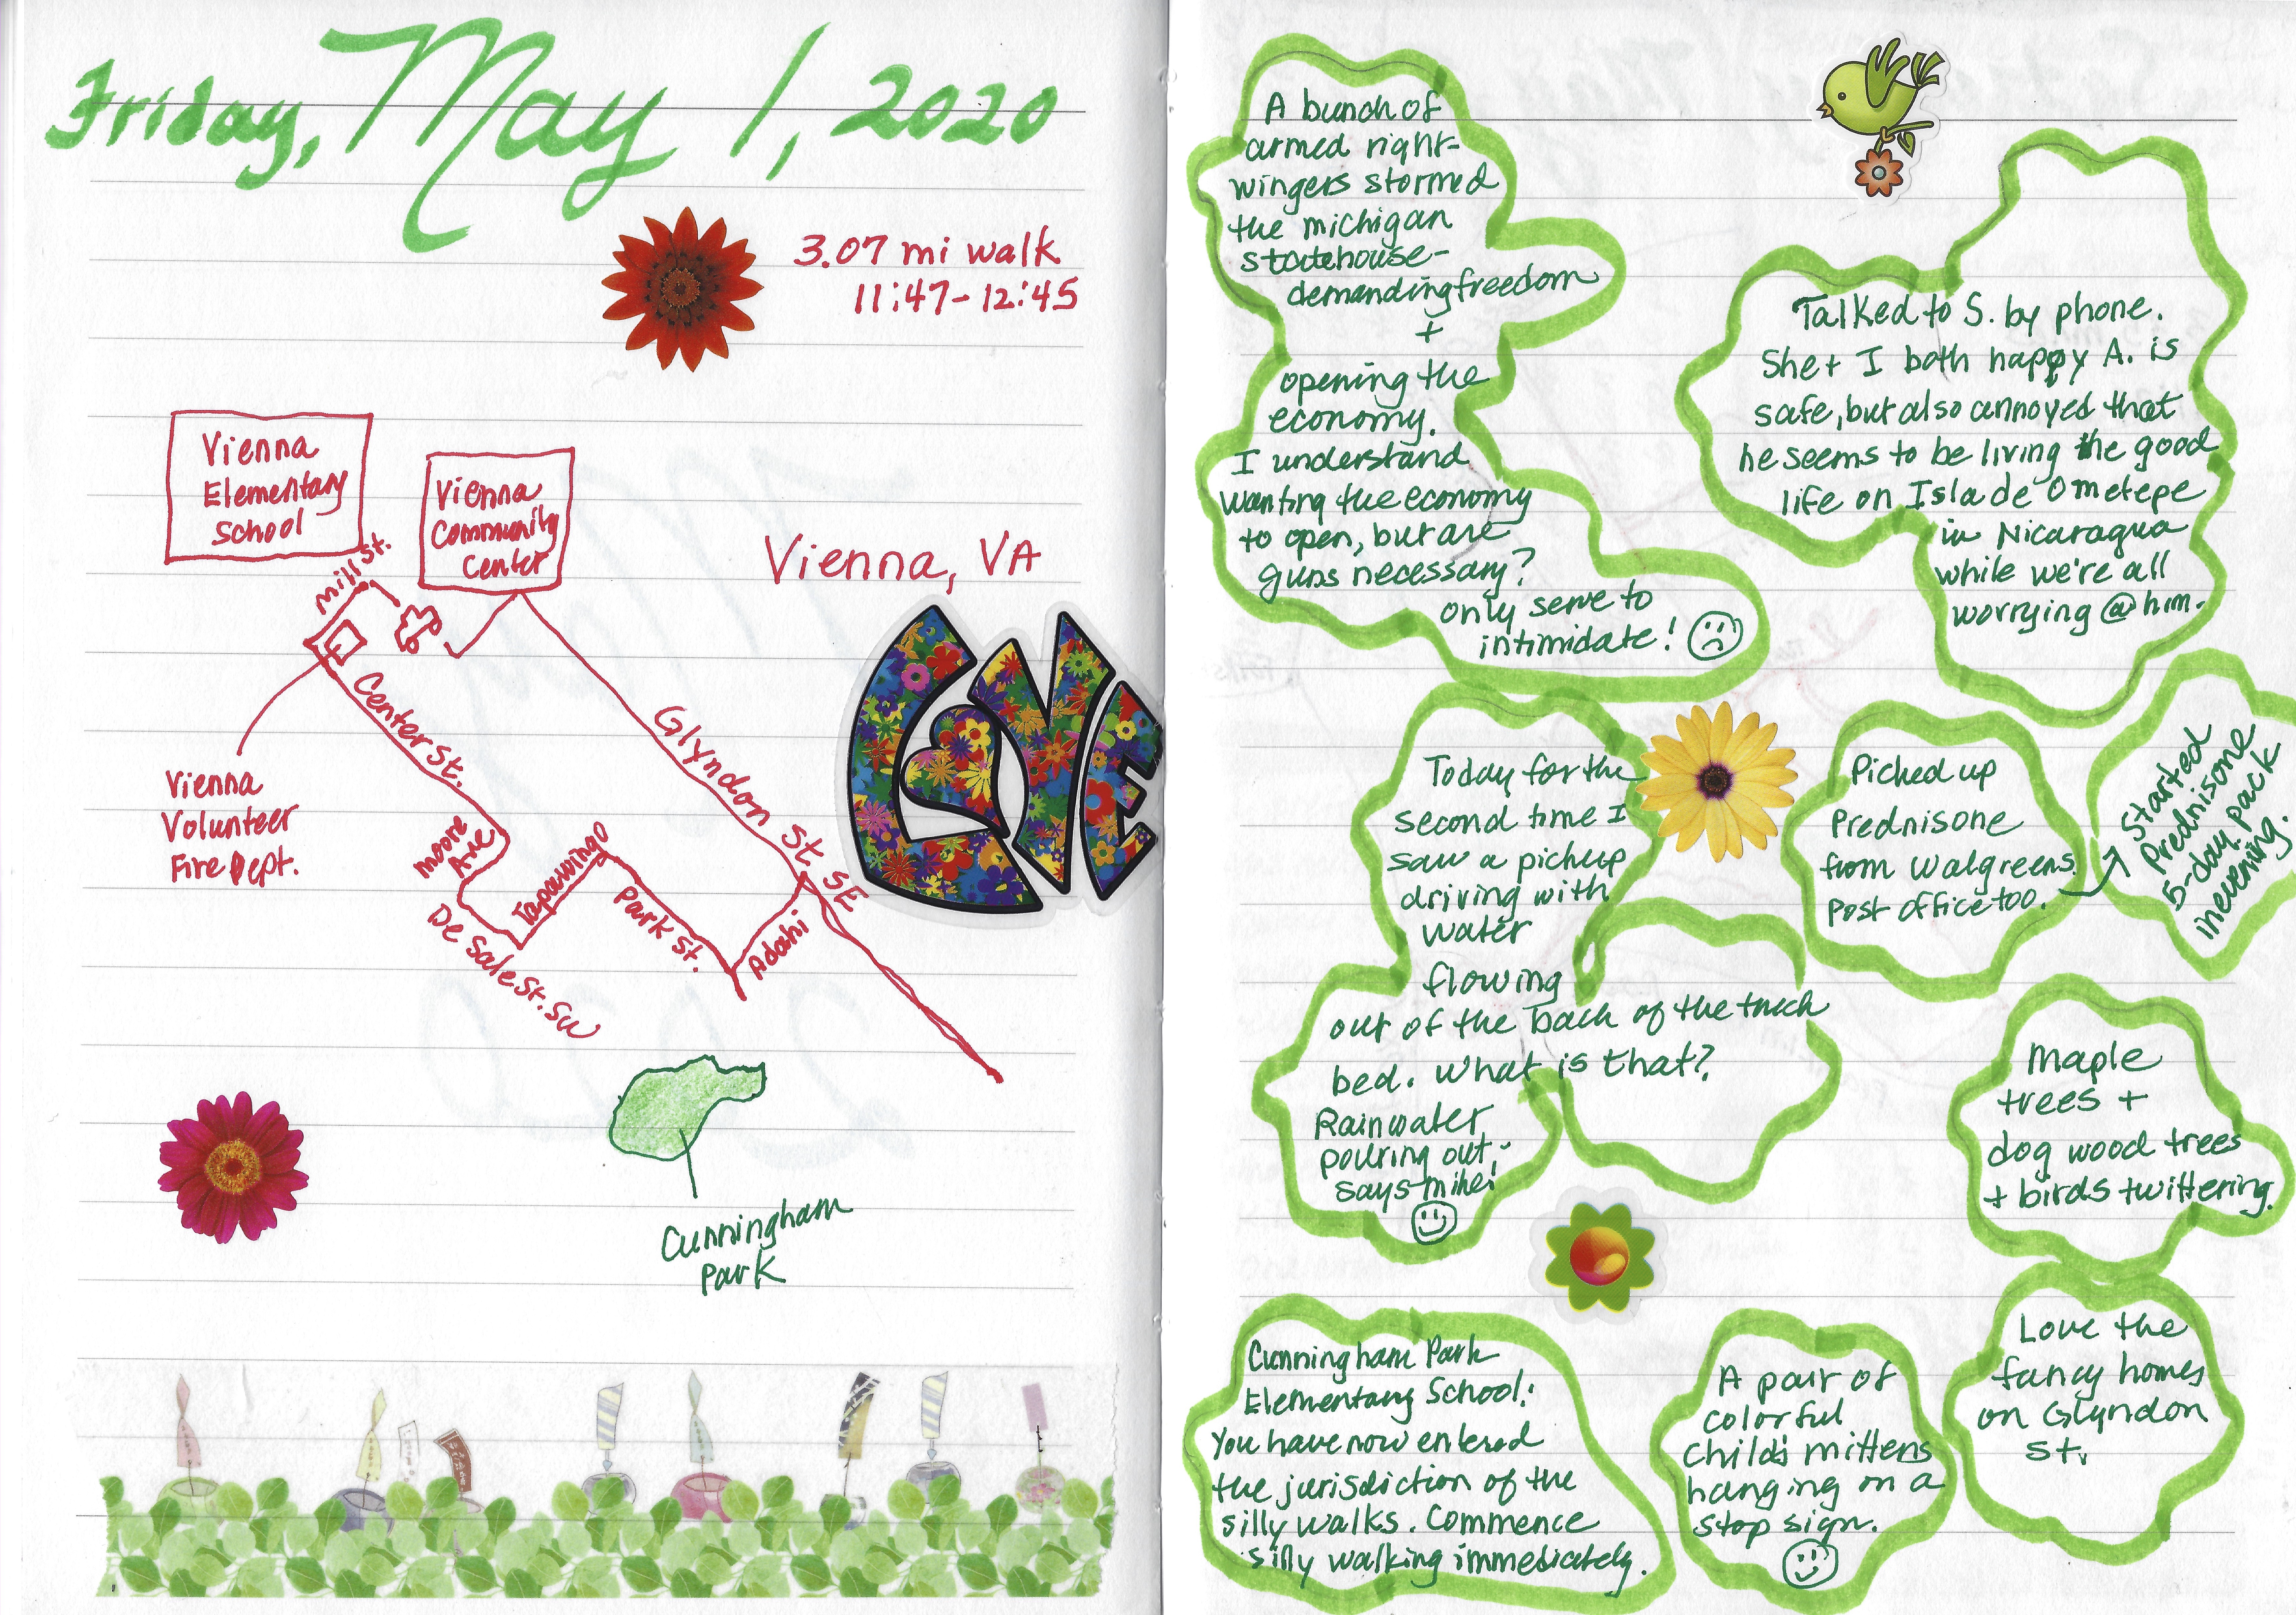 Friday, May 1, 2020
3.07 mi walk
11:47-12:45
Vienna
Elementary
School
Vienna
Community
Center
Mill St.
Vienna, VA
Center St.
Glyndon St. SE
Vienna
Volunteer
Fire Dept.
Moore
Ave
Tapawingo
Park St.
Adahi
De Sale St. SW
LOVE
Cunningham
Park
A bunch of
armed right-
wingers stormed
the michigan
statehouse-
demanding freedom
+
opening the
economy.
I understand
wanting the economy
to open, but are
guns necessary?
only serve to
intimidate!
Talked to S. by phone.
She + I both happy A. is
safe, but also annoyed that
he seems to be living the good
life on Isla de Ometepe
in Nicaragua
while we're all
worrying @ him.
Today for the
second time I
saw a pickup
driving with
water
flowing
out of the back of the truck
bed. What is that?
Rainwater
pouring out,
says Mike!
Picked up
Prednisone
from Walgreens.
Post office too.
Started
Prednisone
5-day pack
in evening.
Maple
trees +
dog wood trees
+ birds twittering.
Cunningham Park
Elementary School:
You have now entered
the jurisdiction of the
silly walks. Commence
silly walking immediately.
A pair of
colorful
child's mittens
hanging on a
stop sign.
Love the
fancy homes
on Glyndon
St.